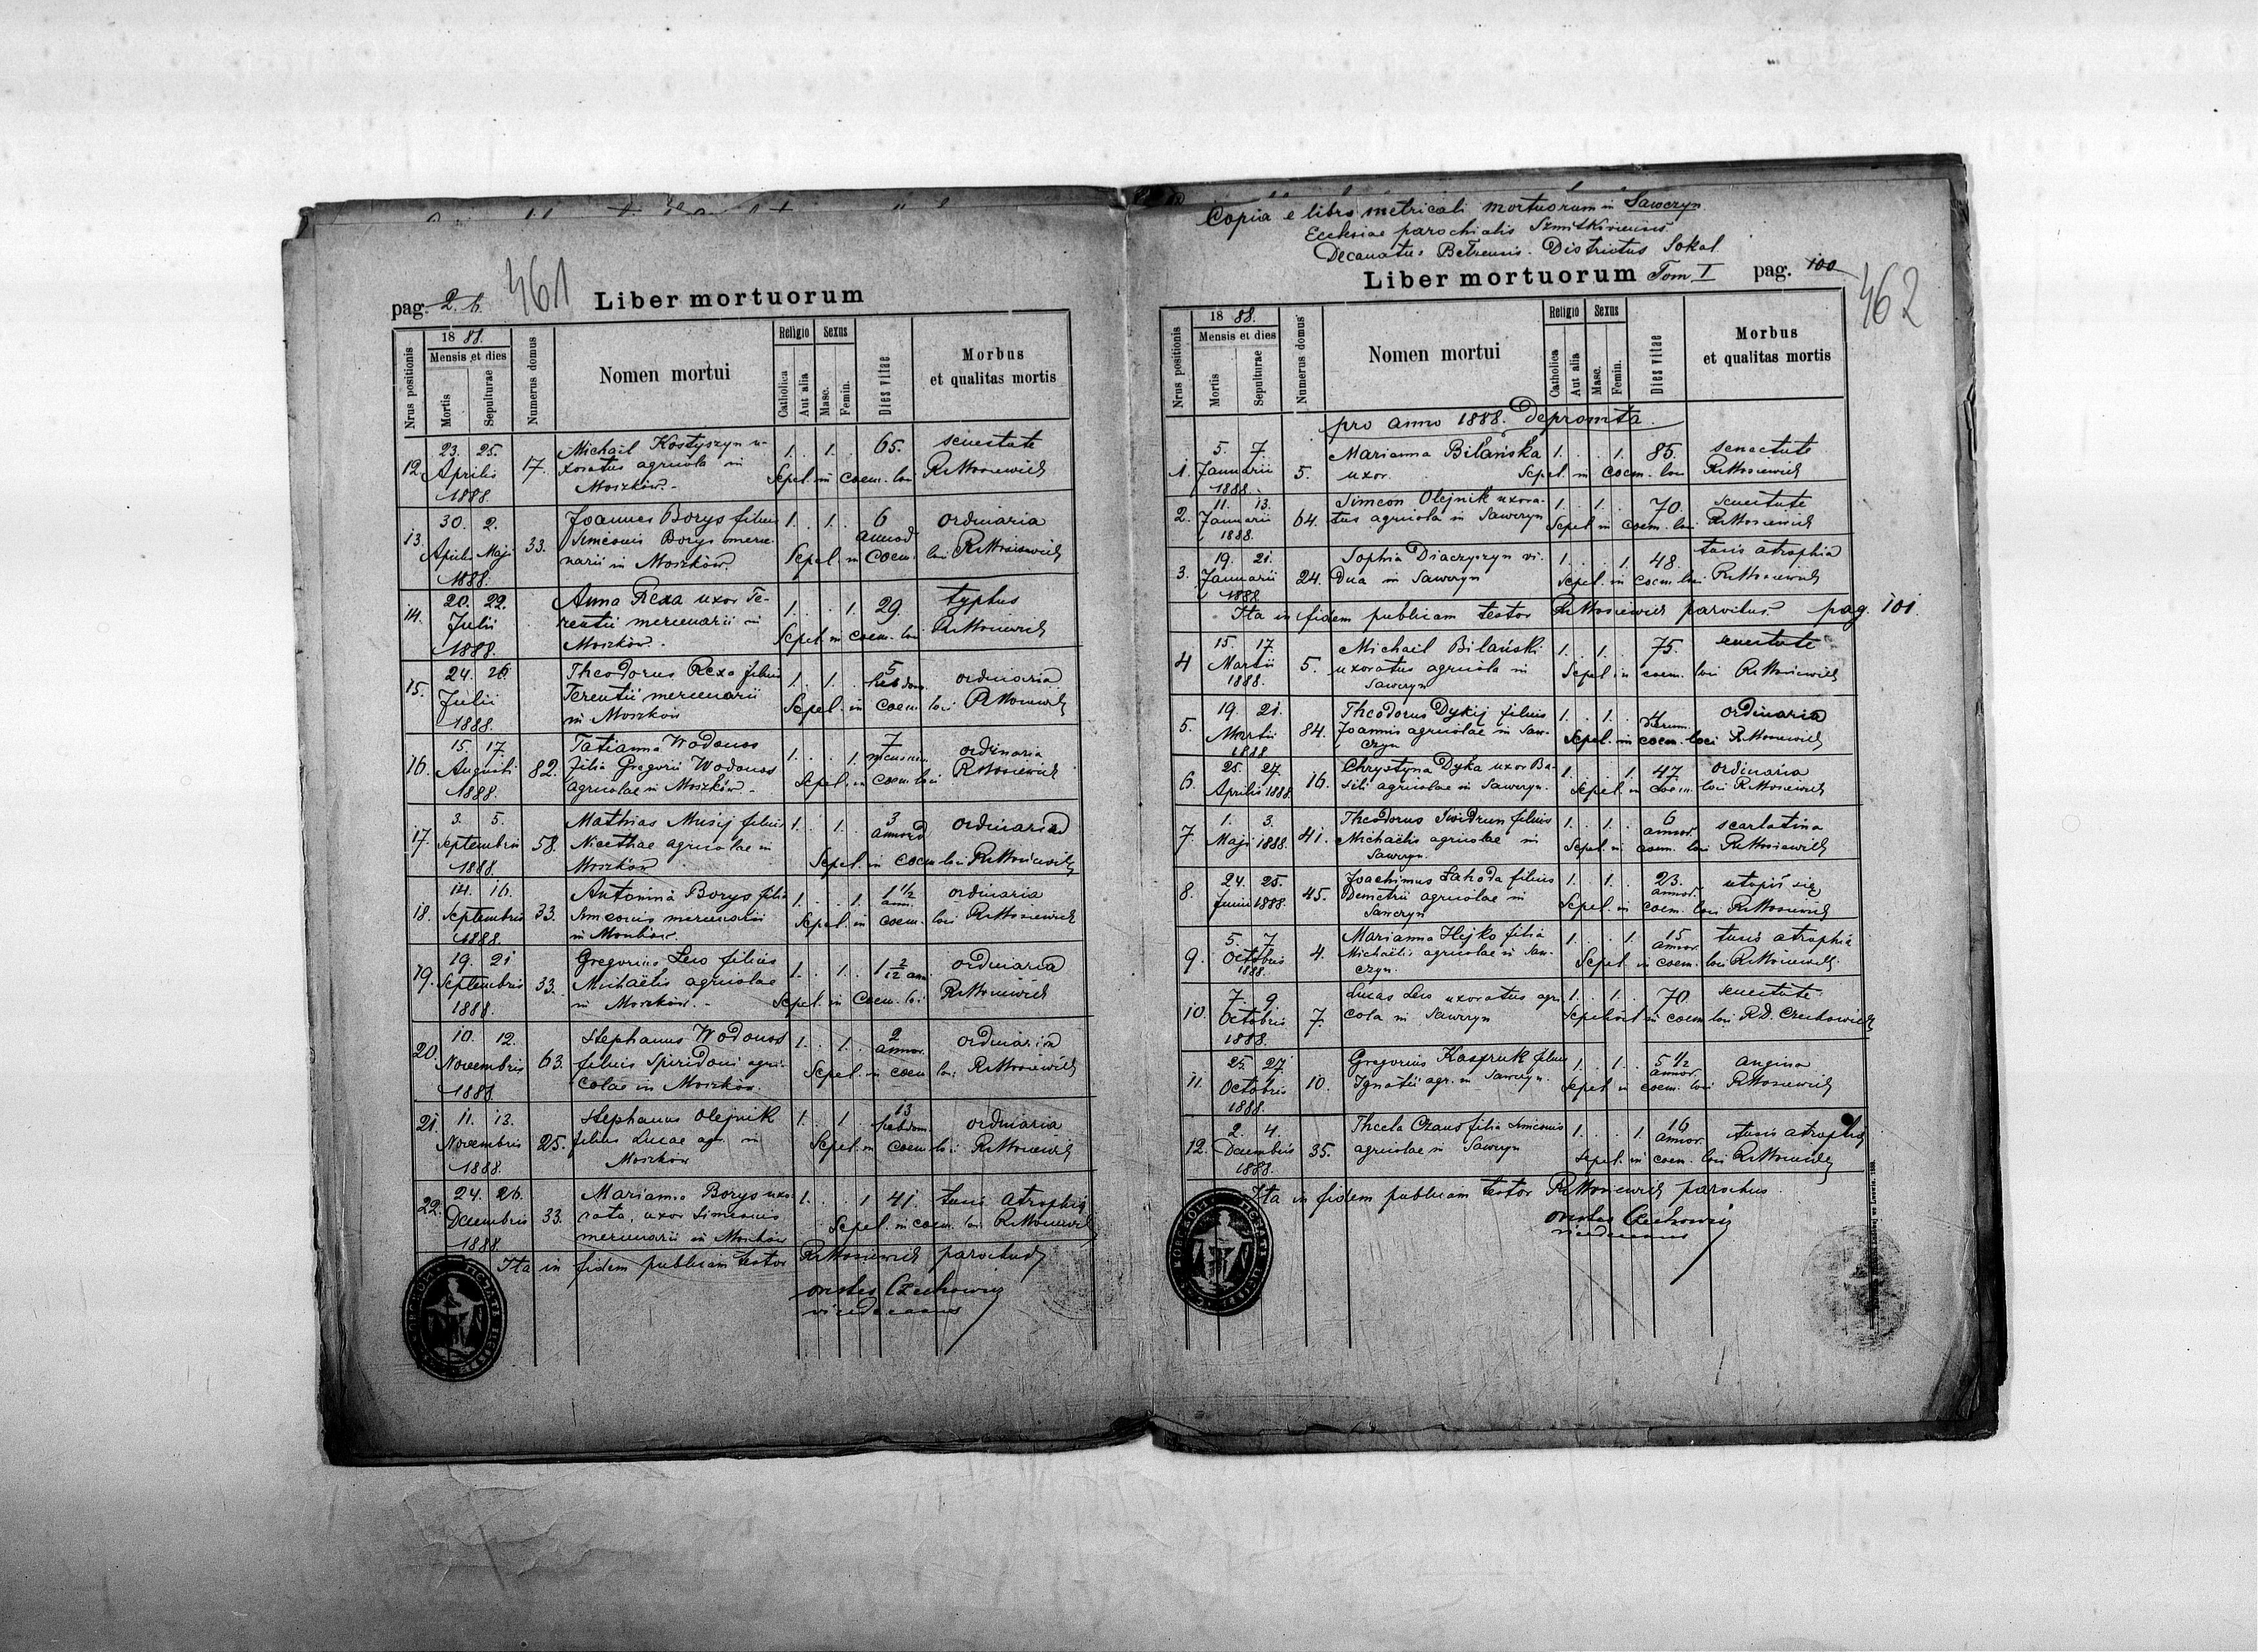 pag. 2. b. 461 Liber mortuorum
Nrus positionis
18 88.
Mensis et dies
Mortis
Sepulturae
Numerus domus
Nomen mortui
Religio
Catholica
Aut alia
Sexus
Masc.
Femin.
Dies vitae
Morbus
et qualitas mortis
23. 25. Michael Kostyszyn u- 1. . 1. . 65. senectute
12. Aprilis 17. xoratus agricola in Sepel. in coem. loci R. Mosiewich
1888. Moszków.
30. 2. Joannes Borys filius 1. . 1. . 6 ordinaria
13. Aprilis Maji 33. Simeonis Borys merce- annor.
1888. narii in Moszków Sepel. in coem. loci R. Mosiewich
20. 22. Anna Rexa uxor Te- 1. . . 1. 29. typhus
14. Julii rentii mercenarii in Sepel. in coem. loci R. Mosiewich
1888. Moszków.
24. 26. Theodorus Rexa filius 1. . 1. . 5 hebdom. ordinaria
15. Julii Terentii mercenarii Sepel. in coem. loci R. Mosiewich
1888. in Moszków
15. 17. Tatianna Wodonos 1. . . 1. 7 mensium ordinaria
16. Augusti 82. filia Gregorii Wodonos Sepel. in coem. loci R. Mosiewich
1888. agricolae in Moszków.
3. 5. Mathias Musij filius 1. . 1. . 3 annor. ordinaria
17. Septembris 58. Nicethae agricolae in
1888. Moszków Sepel. in coem. loci R. Mosiewich
14. 16. Antonina Borys filia 1. . . 1. 1 1/2 ann. ordinaria
18. Septembris 33. Simeonis mercenarii Sepel. in coem. loci R. Mosiewich
1888. in Moszków.
19. 21 Gregorius Lewo filius 1. . 1. . 1 2/12 ann ordinaria
19. Septembris 33. Michaëlis agricolae
1888. in Moszków. Sepel. in coem. loci R. Mosiewich
10. 12. Stephanus Wodonos 1. . 1. . 2 annor. ordinaria
20. Novembris 63. filius Spiridoni agri- Sepel. in coem. loci R. Mosiewich
1888. colae in Moszków.
21. 11. 13. Stephanus Olejnik 1. . 1. . 13 hebdom. ordinaria
Novembris 25. filius Lucae agr. in Sepel. in coem. loci R. Mosiewich
1888. Moszków
24. 26. Marianna Borys uxo- 1. . . 1 41. tusis atrophia
22. Decembris 33. rata, uxor Simeonis Sepel. in coem. loci R. Mosiewich
1888. mercenarii in Moszków
Ita in fidem publicam testor R. Mosiewich parochus
Orestes Czechowicz
vicedecanus
Copia e libro metricali mortuorum in Sawczyn
Ecclesiae parochialis Szmitkoviensis
Decanatus Belzensis. Districtus Sokal
Liber mortuorum Tom I pag. 100 462
Nrus positionis
18 88.
Mensis et dies
Mortis
Sepulturae
Numerus domus
Nomen mortui
Religio
Catholica
Aut alia
Sexus
Masc.
Femin.
Dies vitae
Morbus
et qualitas mortis
pro anno 1888. Depromta.
5. 7. Marianna Bilańska 1. . . 1. 85. senectute
1. Januarii 5. uxor. Sepel. in coem. loci R. Mosiewich
1888.
11. 13. Simeon Olejnik uxora- 1. . 1. . 70. senectute
2. Januarii 64. tus agricola in Sawczyn Sepel. in coem. loci R. Mosiewich
1888.
19. 21. Sophia Diaczyszyn vi- 1. . . 1. 48. tusis atrophia
3. Januarii 24. dua in Sawczyn Sepel. in coem. loci R. Mosiewich
1888
Ita in fidem publicam testor R. Mosiewich parochus pag. 101.
15. 17. Michail Bilański 1. . 1. . 75. senectute
4 Martii 5. uxoratus agricola in Sepel. in coem. loci R. Mosiewich
1888. Sawczyn
19. 21. Theodorus Dykij filius 1. . 1. . 4 dierum ordinaria
5. Martii 84. Joannis agricolae in Saw- Sepel. in coem. loci R. Mosiewich
1888 czyn
25. 27. Chrystyna Dyka uxor Ba- 1. . . 1. 47. ordinaria
6. Aprilis 1888. 16. sili agricolae in Sawczyn. Sepel. in coem. loci R. Mosiewich
1. 3. Theodorus Swidrun filius 1. . 1. . 6 annor. scarlatina
7. Maji 1888. 41. Michaëlis agricolae in Sepel. in coem. loci R. Mosiewich
Sawczyn.
24. 25. Joachimus Łahoda filius 1. . 1. . 23. annor. utopił się
8. Junii 1888. 45. Demetrii agricolae in Sepel. in coem. loci R. Mosiewich
Sawczyn
5. 7. Marianna Hejko filia 1. . . 1. 15 annor. tusis atrophia
9. Octobris 4. Michaëlis agricolae in Saw- Sepel. in coem. loci R. Mosiewich
1888. czyn.
7. 9. Lucas Lewo uxoratus agri- 1. . 1. . 70. senectute
10. Octobris 7. cola in Sawczyn Sepelivit in coem. loci R. D. Czechowicz
1888.
25. 27. Gregorius Kaspruk filius 1. . 1. . 5 1/2 annor. angina
11. Octobris 10. Ignatii agr. in Sawczyn. Sepel. in coem. loci R. Mosiewich
1888.
2. 4. Thecla Czaus filia Simeonis 1. . . 1. 16 annor. tusis atrophia
12. Decembris 35. agricolae in Sawczyn Sepel. in coem. loci R. Mosiewich
1888.
Ita in fidem publicam testor R. Mosiewich parochus
Orestes Czechowicz
vicedecanus